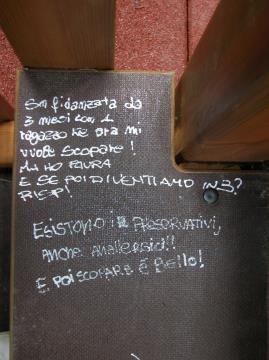 Son fidanzata da
3 mesi con 1
ragazzo ke ora mi
vuole scopare!
MA HO PAURA
E SE POI DIVENTIAMO IN 3?
RISP!
ESISTONO i PRESERVATIVI,
ANCHE Anallergici!!
E POI SCOPARE È BELLO!